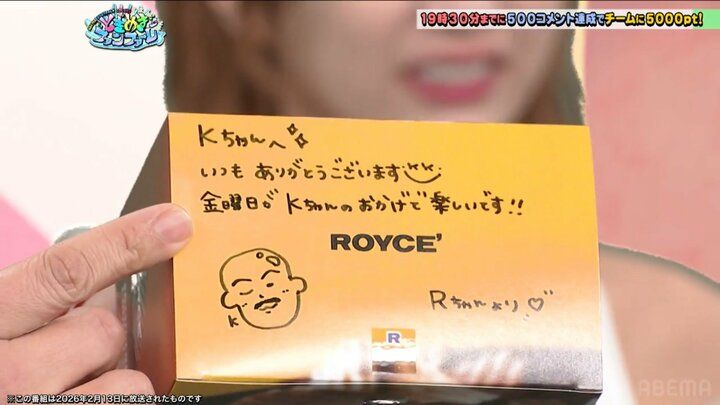 19時30分までに500コメント達成でチームに5000pt!
Kちゃんへ
いつも ありがとうございます
金曜日が Kちゃんの おかげで 楽しいです!!
ROYCE'
K
Rちゃんより♡
R
ABEMA
※この番組は2026年2月13日に放送されたものです